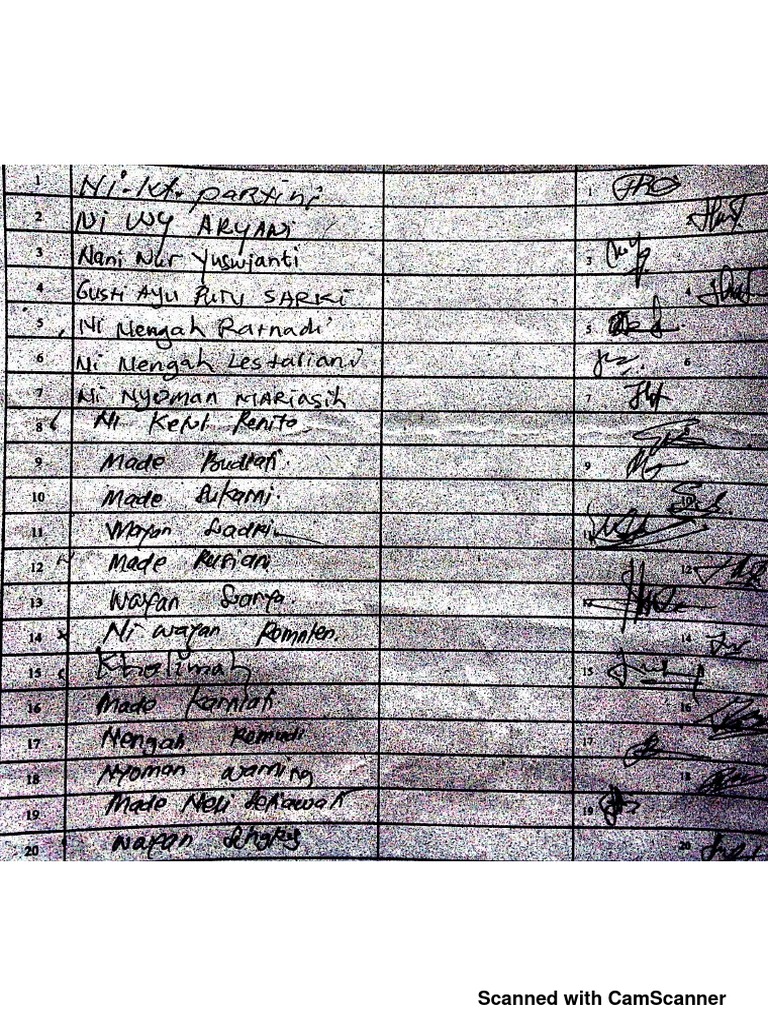 1 Ni. Kt. partini 1
2 Ni WY ARYANI 2
3 Nani Nur Yuswianti 3
4 Gusti AYU PUTU SARKI 4
5 Ni Nengah Ratnadi 5
6 Ni Nengah Lestariani 6
7 Ni NYOMAN MARIASIH 7
8 Ni Ketut Renito
9 Made Budiati. 9
10 Made Sukarni. 10
11 Wayan Sadri. 11
12 Made Rusiani 12
13 Wayan 13
14 Ni wayan 14
15 Kholimah 15
16 Made Karniati 16
17 Nengah 17
18 Nyoman warning 18
19 Made Neli Setiawati 19
20 Wayan 20
Scanned with CamScanner